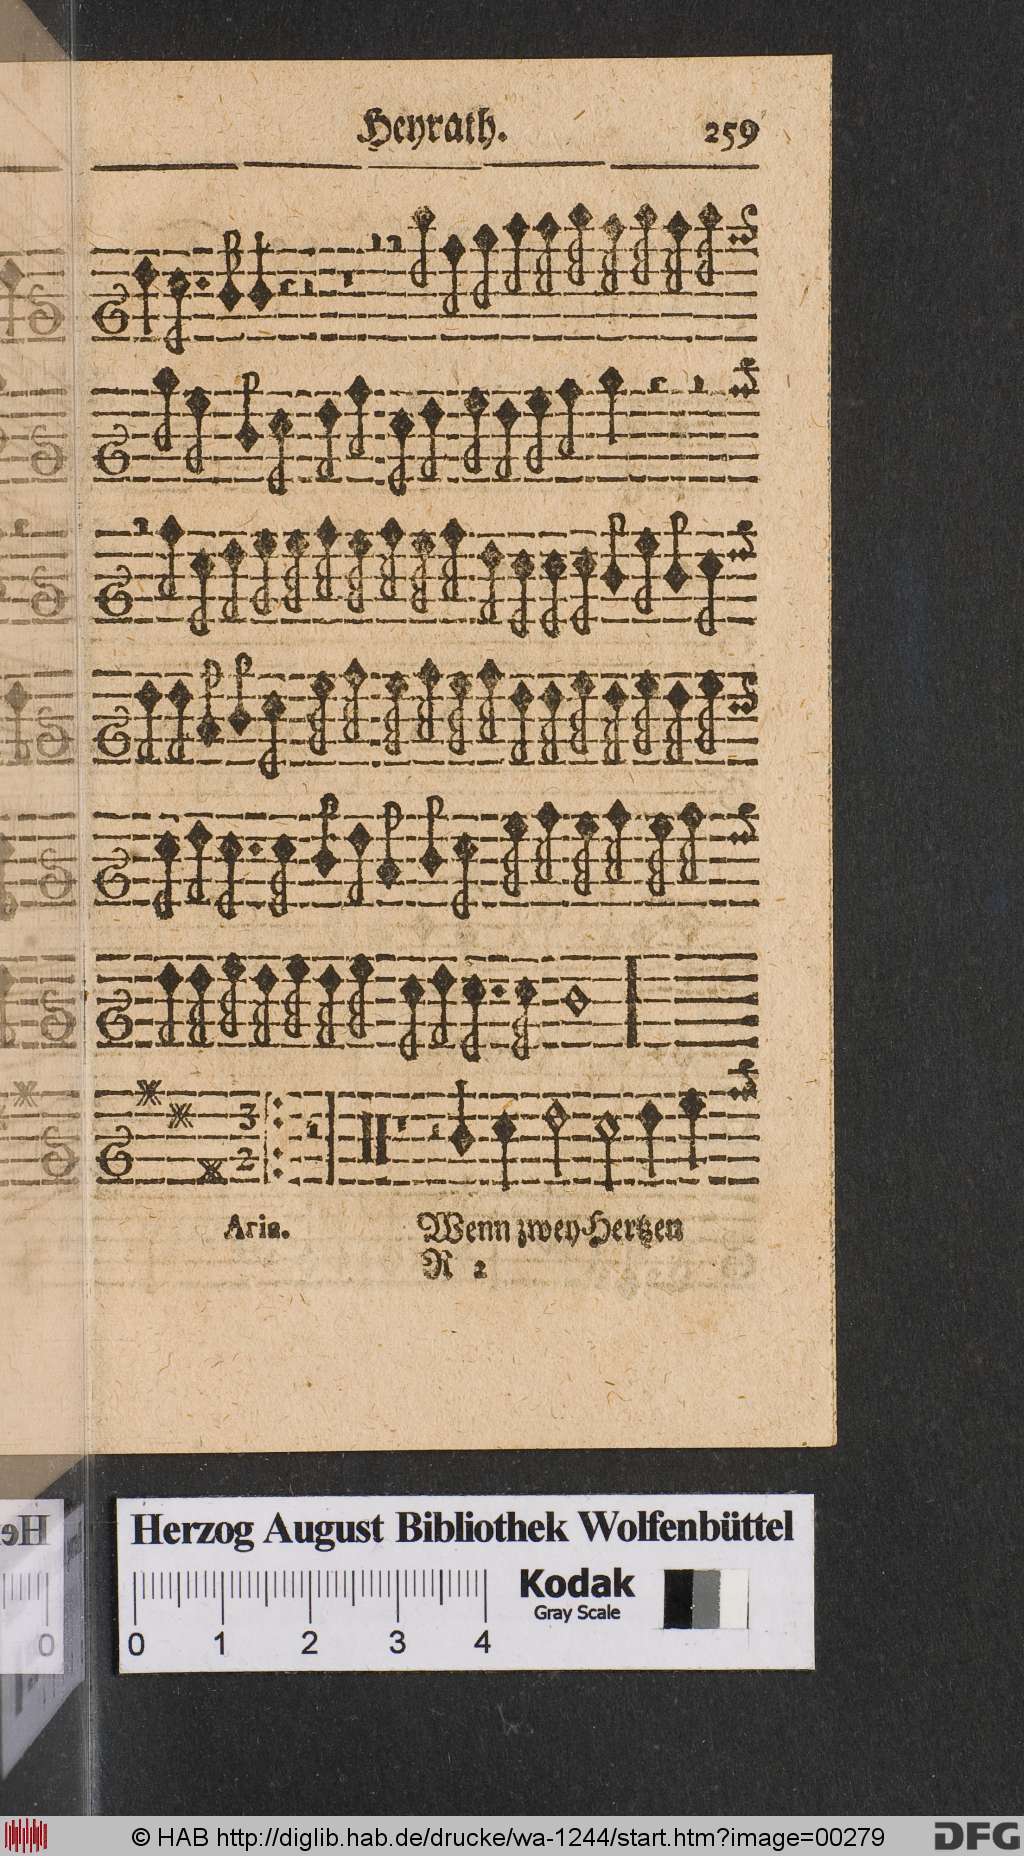 Heyrath. 259
3
2
Aria. Wenn zwey Hertzen
R 2
Herzog August Bibliothek Wolfenbüttel
Kodak
Gray Scale
0 1 2 3 4
0
© HAB http://diglib.hab.de/drucke/wa-1244/start.htm?image=00279
DFG